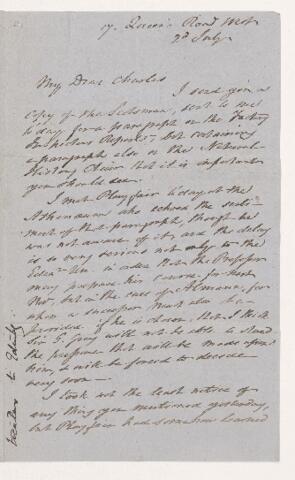 17. Queen's Road West
2d July
My Dear Charles
I send you a
Copy of the Scotsman, sent to me
to day for a paragraph on the Factory
Inspectors Reports, but containing
a paragraph also on the National
History Chair that it is important
you should see.
I met Playfair to day at the
Athenaeum who echoed the
much of that paragraph, though he
was not aware of it, and the delay
is so very serious not only to the
in order that the Professor
may prepare his course for next
Nov, but in the case of Allmann, for
whom a successor must also be
provided if he is chosen, that I think
Sir G. Grey will not be able to stand
the pressure that will be made upon
him, & will be forced to decide
very soon —
I took not the least notice of
any thing you mentioned yesterday,
but Playfair had somehow learned